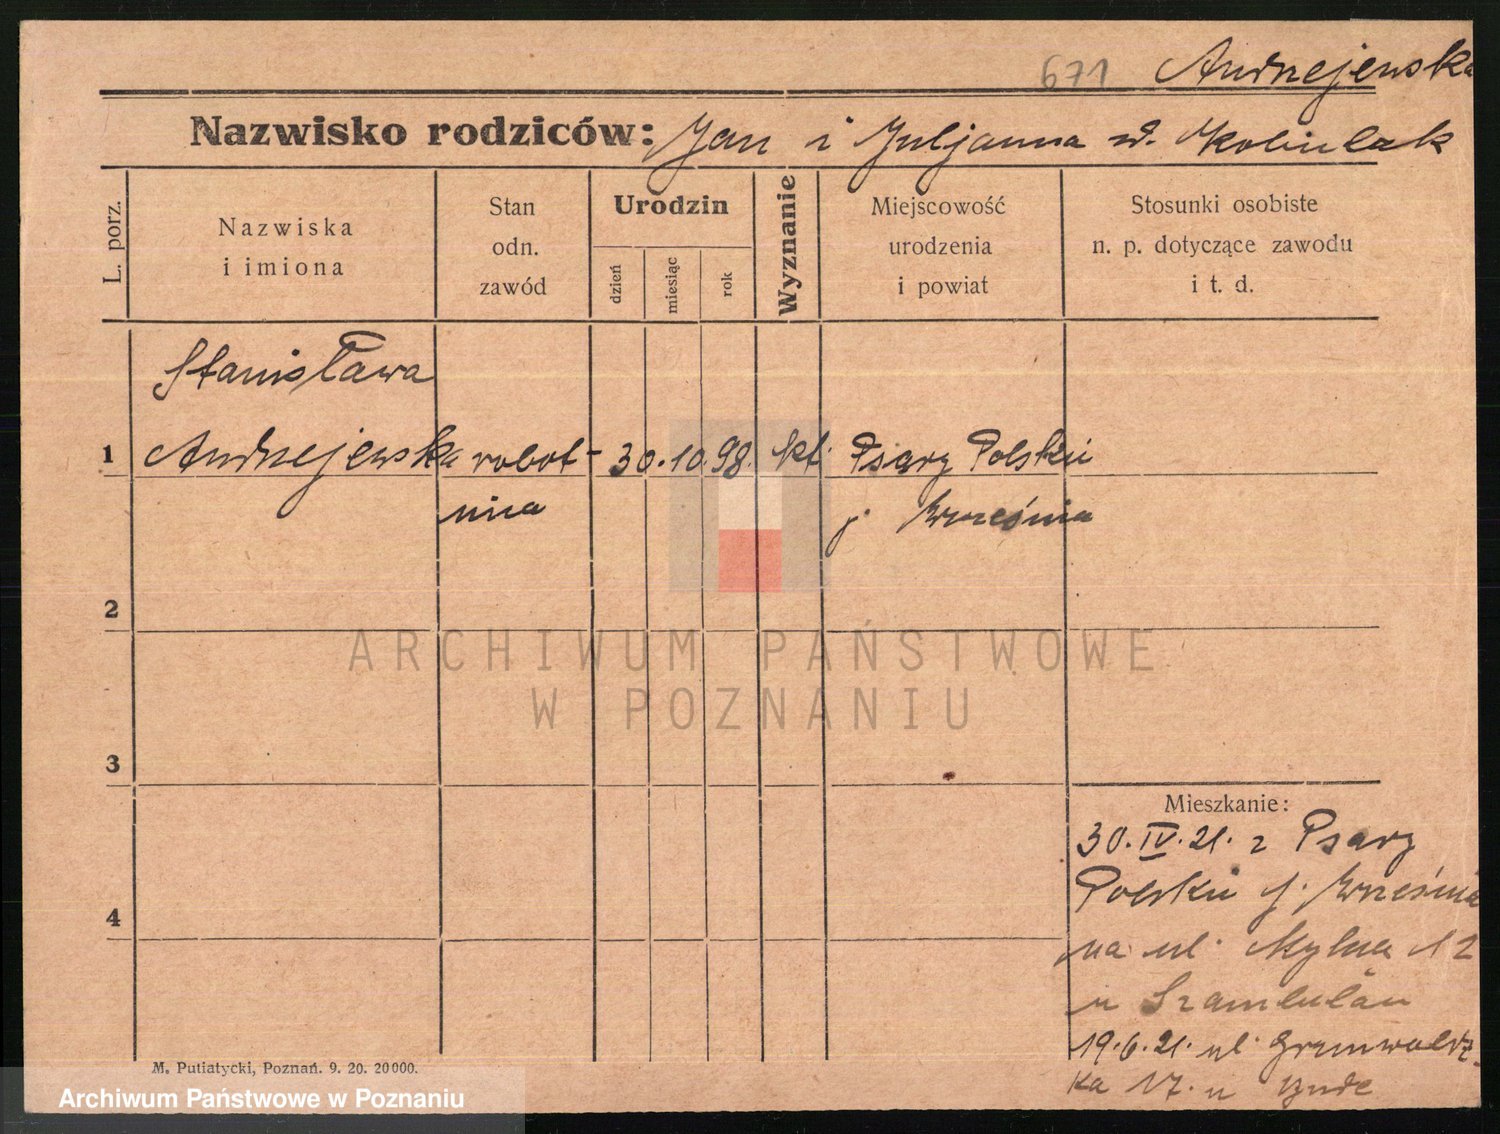 671 Andrzejewska
Nazwisko rodziców: Jan i Juljanna z d. Kobielak
L. porz.
Nazwiska
i imiona
Stan
odn.
zawód
Urodzin
dzień
miesiąc
rok
Wyznanie
Miejscowość
urodzenia
i powiat
Stosunki osobiste
n. p. dotyczące zawodu
i t. d.
Stanisława
1 Andrzejewska robot- 30. 10. 98. kt. Psary Polskie
nica p. Września
2
ARCHIWUM PAŃSTWOWE
W POZNANIU
3
Mieszkanie:
30.IV.21. z Psary
Polskie p. Września
4
na ul. Mylna 12
u
19.6.21. ul. Grunwaldz-
ka 17. u
M. Putiatycki, Poznań. 9. 20. 20000.
Archiwum Państwowe w Poznaniu